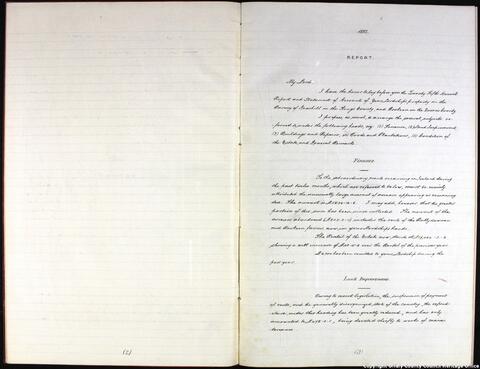 1882.
REPORT.
My Lord,
I have the honor to lay before you the Twenty Fifth Annual
Report and Statement of Account of Your Lordship's property in the
Barony of Geashill in the King's County, and
I propose, as usual, to arrange the general subjects re-
ferred to under the following heads, viz: (1) Finance, (2) Land Improvement,
(3) Buildings and Repairs, (4) Woods and Plantations, (5) Condition of
the Estate, and General Remarks.
Finance.
To the extraordinary events occurring in Ireland during
the past twelve months, which are referred to below, must be mainly
attributed the unusually large amount of arrears appearing as remaining
due. The amount is I may add, however that the greater
portion of this sum has been since collected. The amount of the
arrears includes the rents of the
and farms now in your Lordship's hands.
The Rental of the Estate now stands at
showing a nett increase of over the Rental of the previous year.
has been remitted to your Lordship during the
past year.
Land Improvement.
Owing to recent legislation, the of payment
of rents, and the generally disorganized state of the country, the expend-
iture under this heading has been greatly reduced, and has only
amounted to being devoted chiefly to works of main-
tenance
(2)
(3)
Copyright Offaly County Council Heritage Office